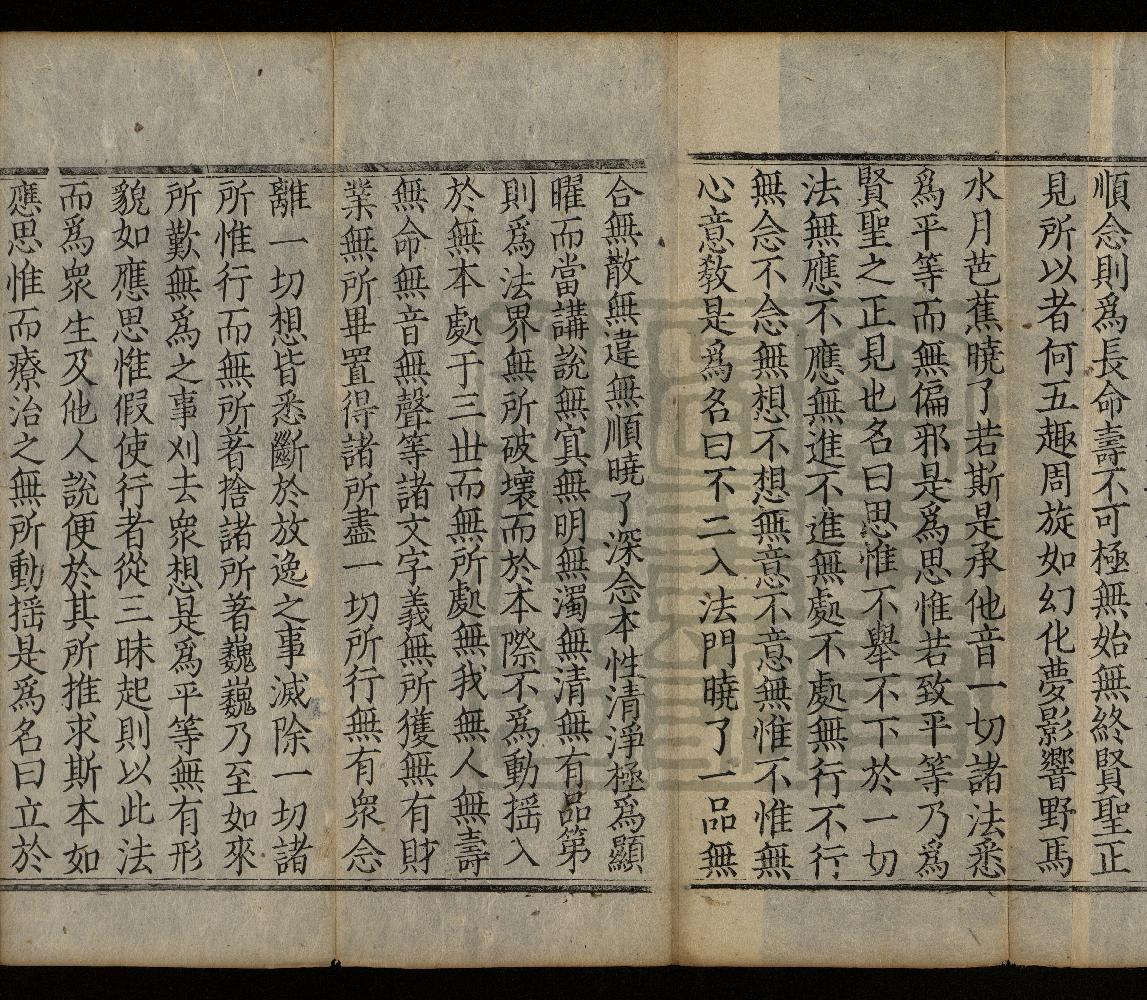 順念則爲長命壽不可極無始無終賢聖正
見所以者何五趣周旋如幻化夢影響野馬
水月芭蕉曉了若斯是承他音一切諸法悉
爲平等而無偏邪是爲思惟若致平等乃爲
賢聖之正見也名曰思惟不舉不下於一切
法無應不應無進不進無處不處無行不行
無念不念無想不想無意不意無惟不惟無
心意教是爲名曰不二入法門曉了一品無
合無散無違無順曉了深念本性清淨極爲顯
曜而當講說無冥無明無濁無清無有品第
則爲法界無所破壞而於本際不爲動搖入
於無本處于三世而無所處無我無人無壽
無命無音無聲等諸文字義無所獲無有財
業無所畢置得諸所盡一切所行無有眾念
離一切想皆悉斷於放逸之事滅除一切諸
所惟行而無所著捨諸所著巍巍乃至如來
所歎無爲之事刈去眾想是爲平等無有形
貌如應思惟假使行者從三昧起則以此法
而爲眾生及他人說便於其所推求斯本如
應思惟而療治之無所動搖是爲名曰立於